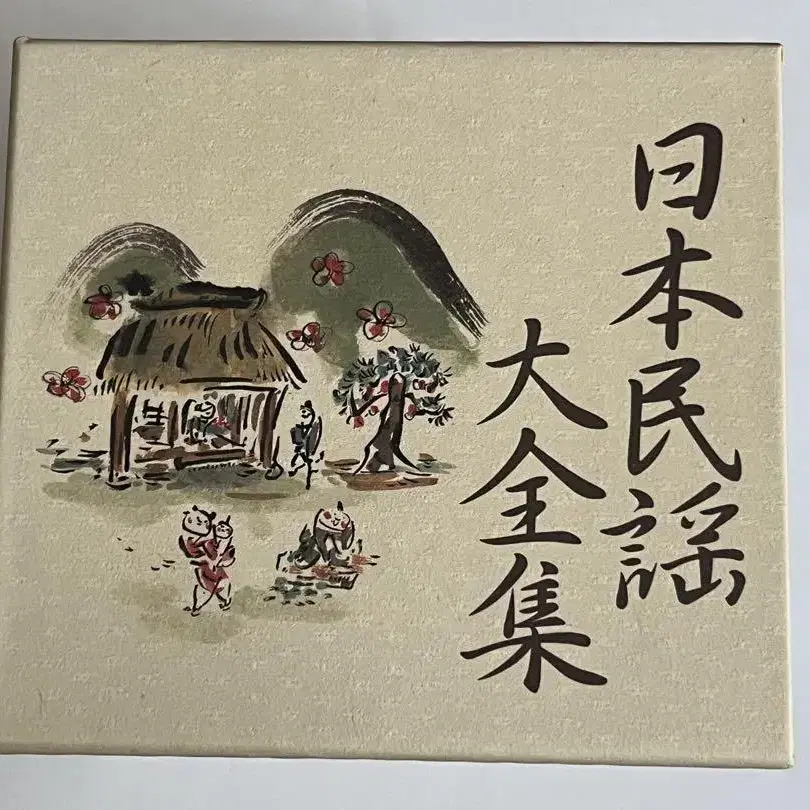 日本民謡
大全集